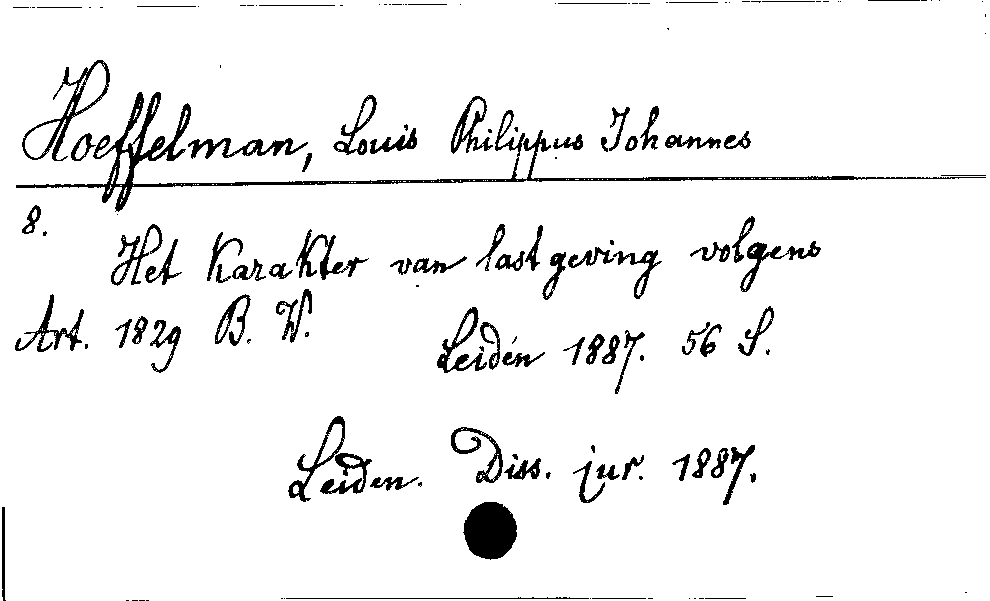 Hoeffelman, Louis Philippus Johannes
8.
Het Karakter van lastgeving volgens
Art. 1829 B. W.
Leiden 1887. 56 S.
Leiden. Diss. jur. 1887.